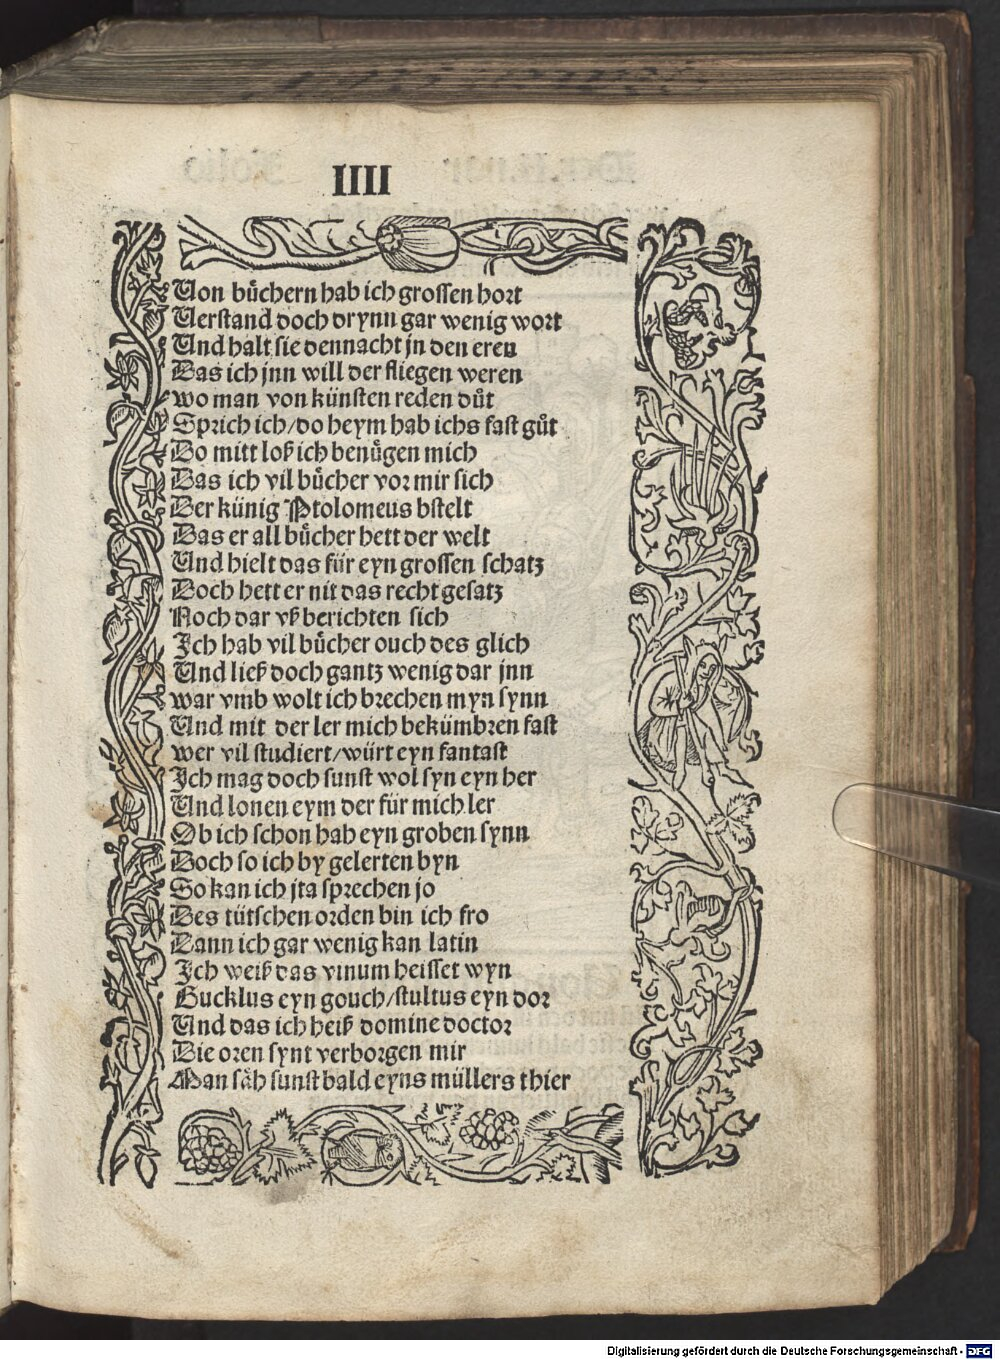 IIII
Von buͤchern hab ich grossen hort
Verstand doch drynn gar wenig wort
Vnd halt sie dennacht jn den eren
Das ich jnn will der fliegen weren
wo man von künsten reden duͦt
Sprich ich/do heym hab ichs fast guͦt
Do mitt loß ich benuͤgen mich
Das ich vil buͤcher vor mir sich
Der künig Ptolomeus bstelt
Das er all buͤcher hett der welt
Vnd hielt das für eyn grossen schatz
Doch hett er nit das recht gesatz
Noch dar vß berichten sich
Ich hab vil buͤcher ouch des glich
Vnd ließ doch gantz wenig dar jnn
war vmb wolt ich brechen myn synn
Vnd mit der ler mich bekümbren fast
wer vil studiert/würt eyn fantast
Ich mag doch sunst wol syn eyn her
Vnd lonen eym der für mich ler
Ob ich schon hab eyn groben synn
Doch so ich by gelerten byn
So kan ich jta sprechen jo
Des tütschen orden bin ich fro
Dann ich gar wenig kan latin
Ich weiß das vinum heisset wyn
Gucklus eyn gouch/stultus eyn dor
Vnd das ich heiß domine doctor
Die oren synt verborgen mir
Man saͤh sunst bald eyns müllers thier
Digitalisierung gefördert durch die Deutsche Forschungsgemeinschaft - DFG